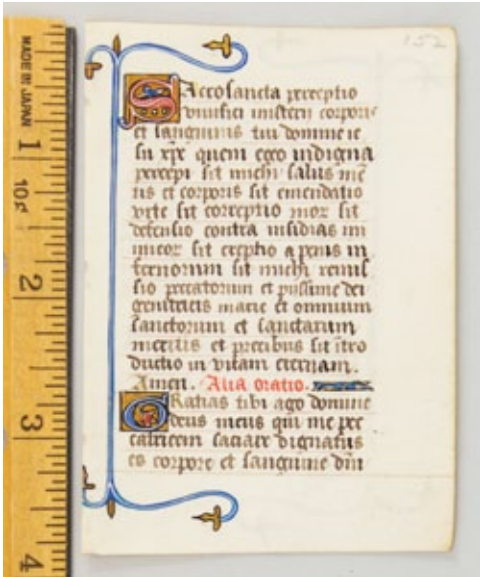 MADE IN JAPAN
1
2
3
4
152
SAcrosancta perceptio
viuifici misterii corporis
et sanguinis tui domine ie
su xpe quem ego indigna
percepi sit michi salus mē
tis et corporis sit emendatio
vite sit correptio moꝝ sit
defensio contra insidias ini
micoꝝ sit ereptio a penis in
fernorum sit michi remis
sio peccatorum et piissime dei
genitricis marie et omnium
sanctorum et sanctarum
meritis et precibus sit ītro
ductio in vitam eternam.
Amen. Alia oratio.
GRatias tibi ago domine
deus meus qui me pec
catricem saciare dignatus
es corpore et sanguine dn̄i